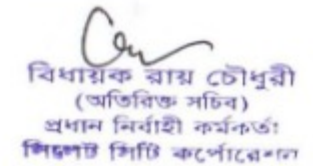 বিধায়ক রায় চৌধুরী
(অতিরিক্ত সচিব)
প্রধান নির্বাহী কর্মকর্তা
সিলেট সিটি কর্পোরেশন